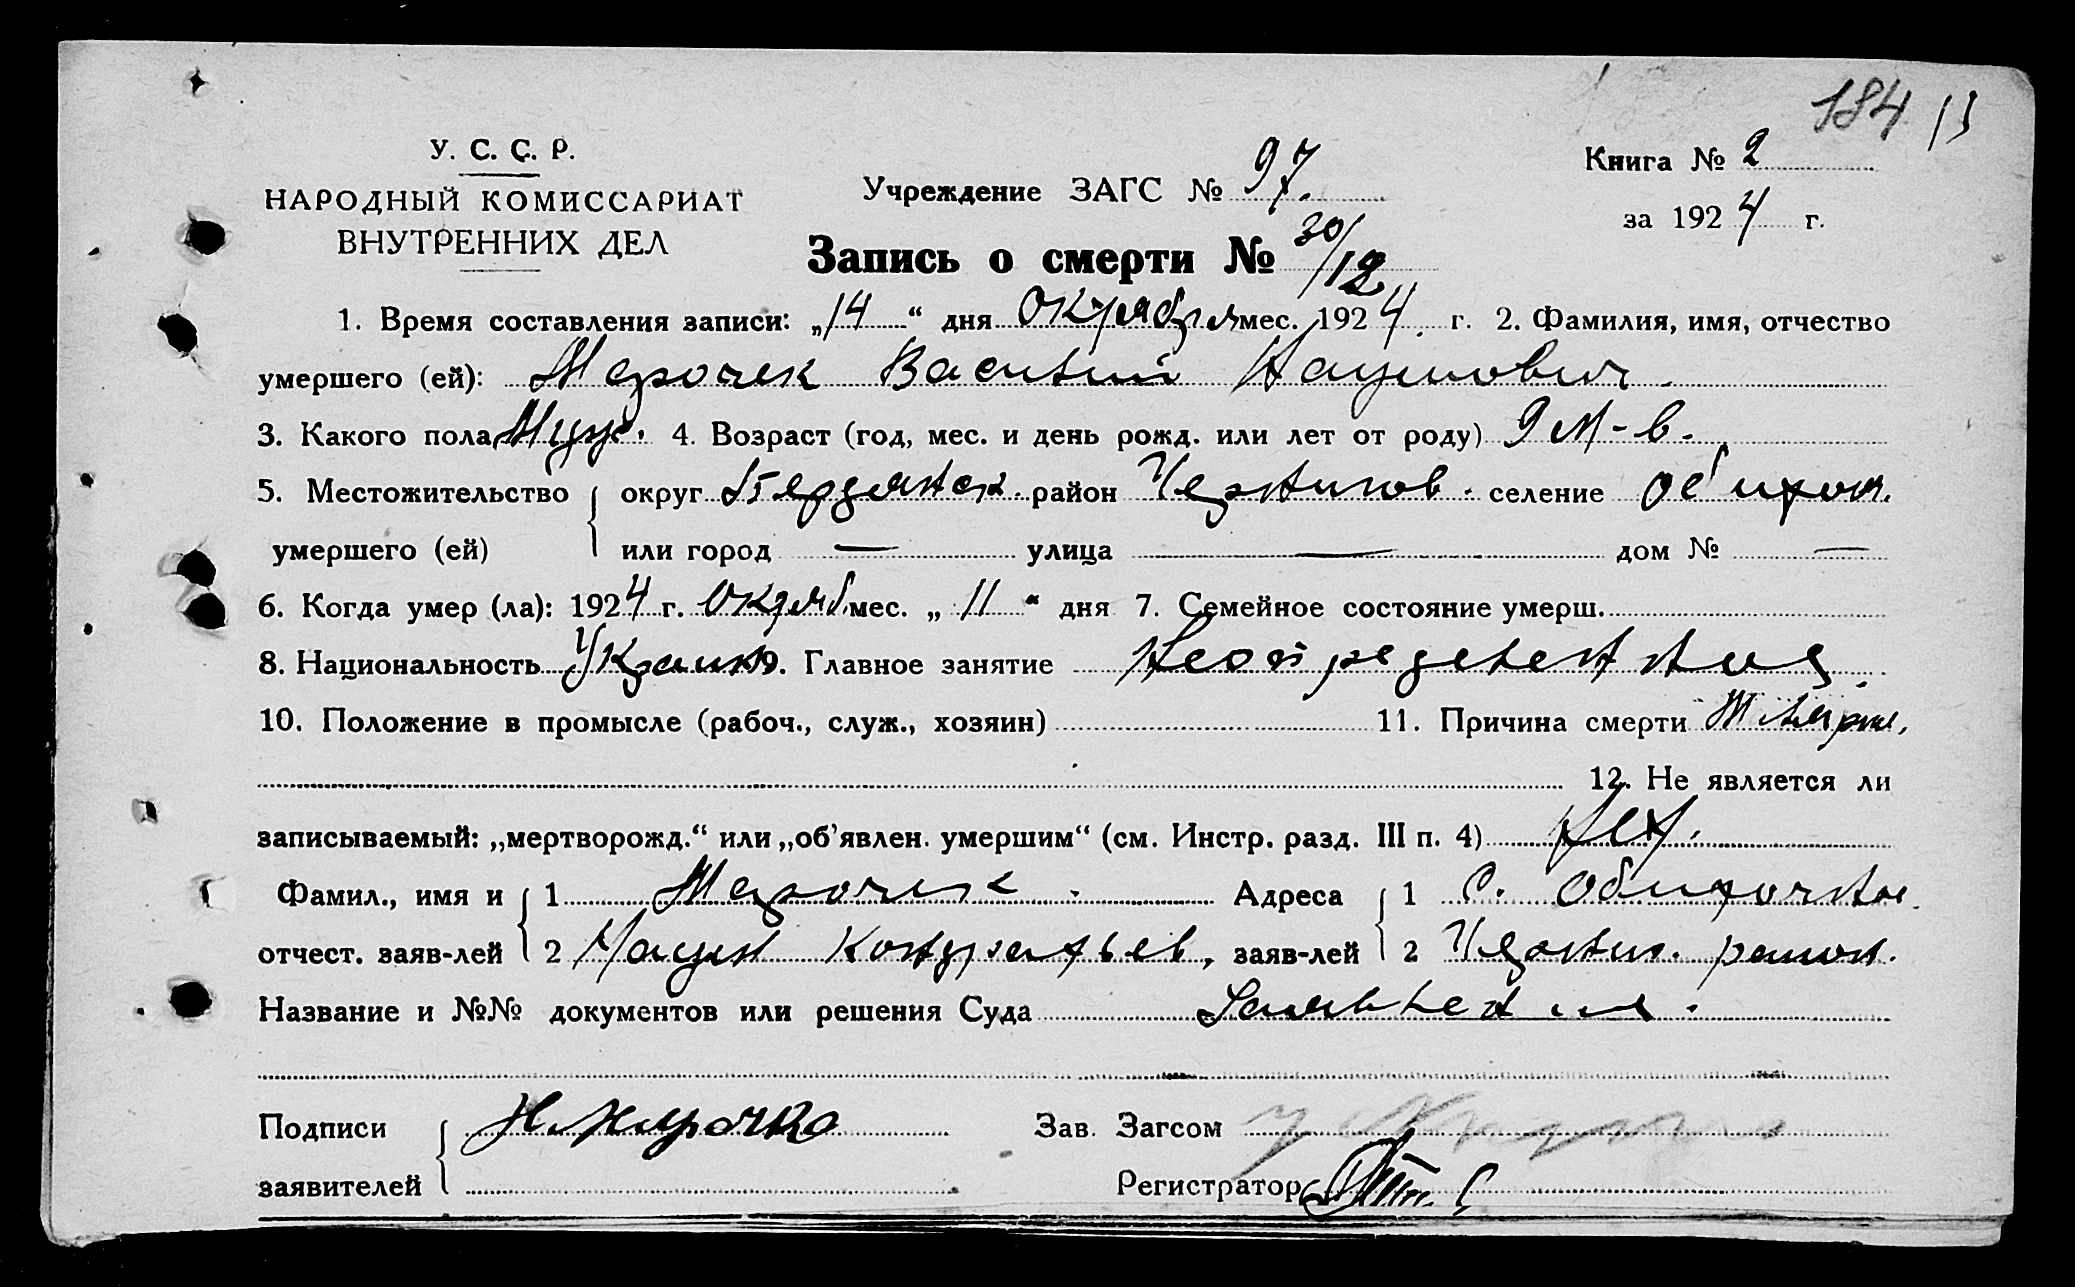 184
У. С. С. Р.
НАРОДНЫЙ КОМИССАРИАТ
ВНУТРЕННИХ ДЕЛ
Учреждение ЗАГС № 97.
Книга № 2
за 1924 г.
Запись о смерти № 30/12
1. Время составления записи: „14“ дня Октября мес. 1924 г. 2. Фамилия, имя, отчество
умершего (ей): Василий Наумович.
3. Какого пола Муж. 4. Возраст (год, мес. и день рожд. или лет от роду) 9 м-в.
5. Местожительство округ Бердянск. район Чернигов. селение Обиточн.
умершего (ей) или город — улица — дом № —
6. Когда умер (ла): 1924 г. Октяб. мес. „11“ дня 7. Семейное состояние умерш.
8. Национальность Украин. 9. Главное занятие
10. Положение в промысле (рабоч., служ., хозяин) 11. Причина смерти
12. Не является ли
записываемый: „мертворожд.“ или „об’явлен. умершим“ (см. Инстр. разд. III п. 4) Нет.
Фамил., имя и 1 Адреса 1 С. Обиточное.
отчест. заяв-лей 2 Наум Кондратьев, заяв-лей 2 Чернигов. район.
Название и №№ документов или решения Суда
Подписи Зав. Загсом
заявителей Регистратор